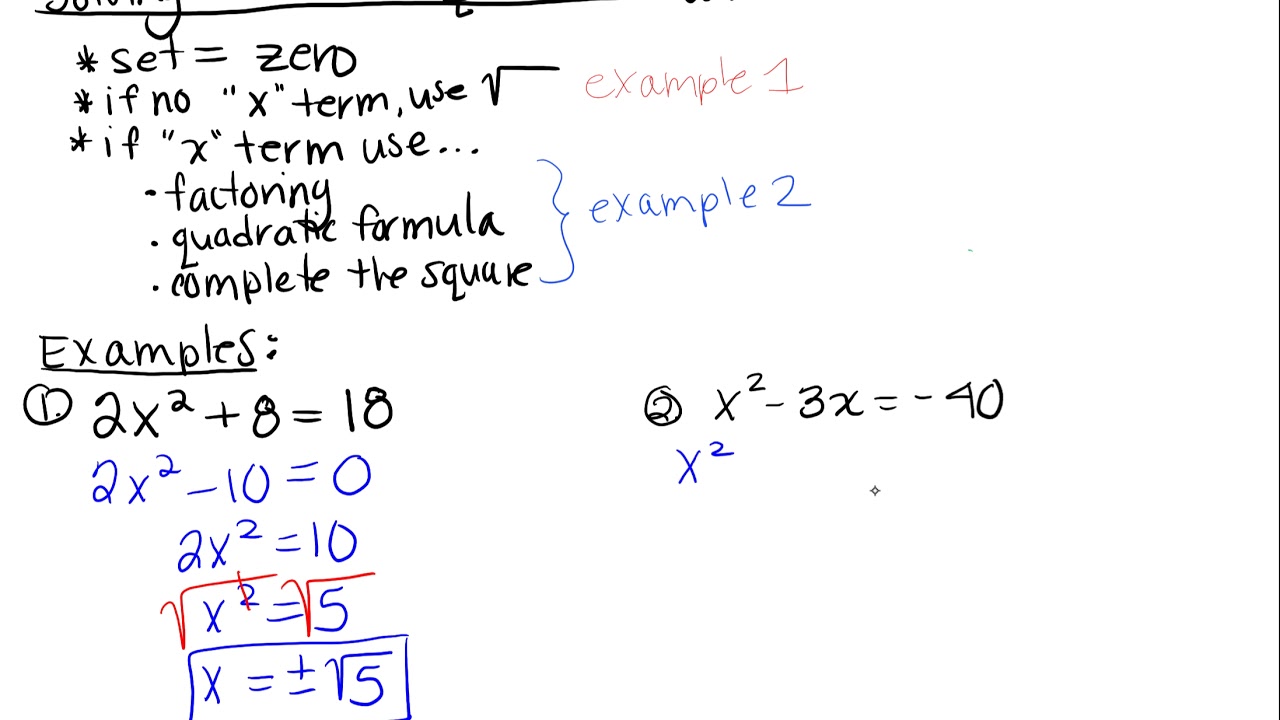 Solving
*set = zero
*if no "x" term, use √ example 1
*if "x" term use...
· factoring
· quadratic formula
· complete the square
} example 2
Examples:
①. 2x² + 8 = 18
2x² - 10 = 0
2x² = 10
√x² = √5
x = ±√5
②. x² - 3x = -40
x²